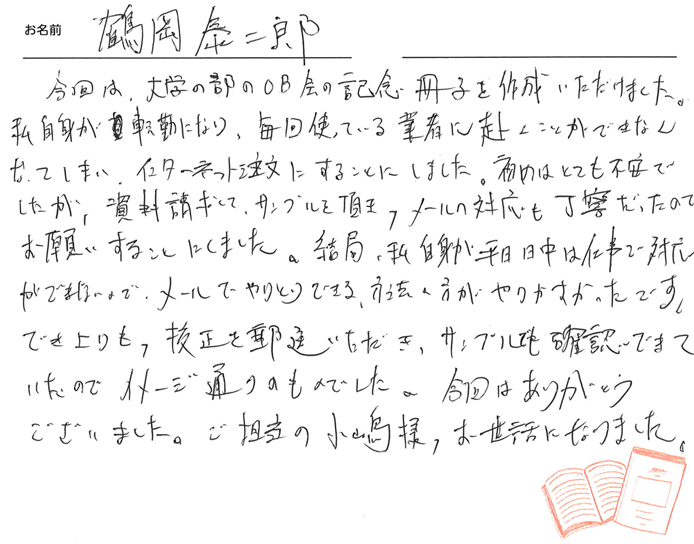 お名前 鶴岡泰二郎
今回は、大学の部のOB会の記念冊子を作成いただけました。
私自身が転勤になり、毎回使っている業者に赴くことができなく
なってしまい、インターネット注文にすることにしました。初めはとても不安で
したが、資料請求して、サンプルを頂き、メールの対応も丁寧だったので
お願いすることにしました。結局、私自身が平日日中は仕事で対応
ができないので、メールでやりとりできる方法の方がやりやすかったです。
でき上りも、校正を郵送いただき、サンプルでも確認できて
いたのでイメージ通りのものでした。今回はありがとう
ございました。ご担当の小嶋様、お世話になりました。